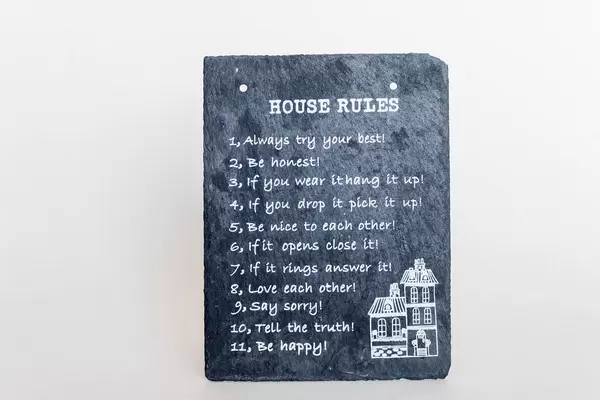 HOUSE RULES
1, Always try your best!
2, Be honest!
3, If you wear ithang it up!
4, If you drop it pick it up!
5, Be nice to each other!
6, Ifit opens close it!
7, If it rings answer it!
8, Love each other!
9, Say sorry!
10, Tell the truth!
11, Be happy!